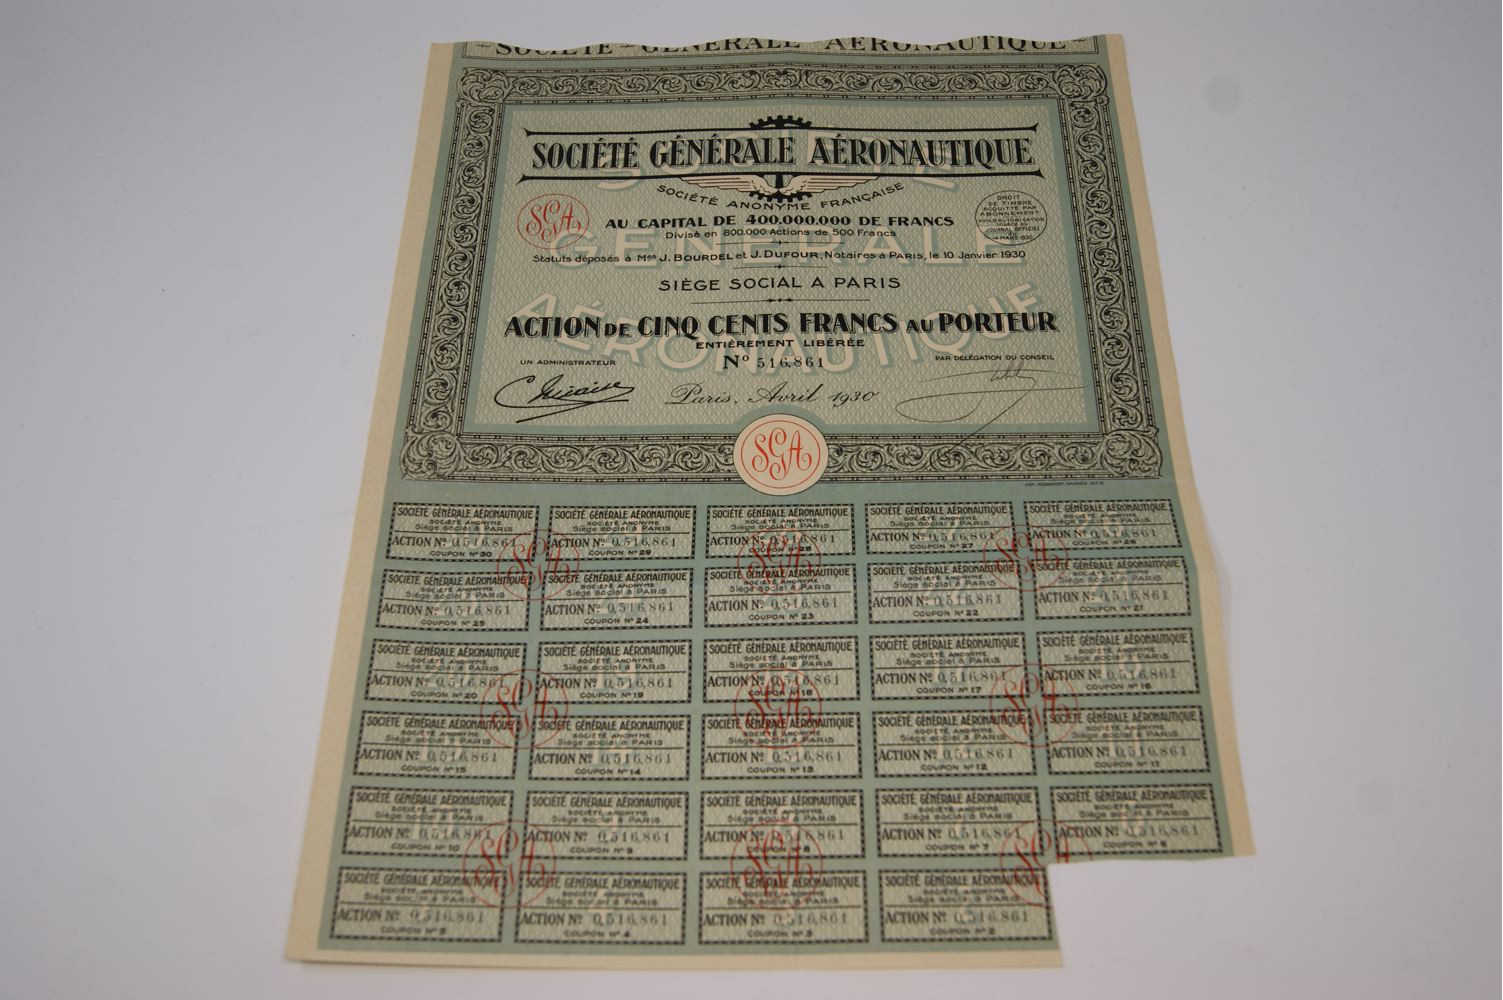 SOCIÉTÉ - GÉNÉRALE - AÉRONAUTIQUE
SOCIÉTÉ GÉNÉRALE AÉRONAUTIQUE
SOCIÉTÉ ANONYME FRANÇAISE
SGA
AU CAPITAL DE 400.000.000 DE FRANCS
Divisé en 800.000 Actions de 500 Francs
DROIT
DE TIMBRE
ACQUITTÉ PAR
ABONNEMENT
AVIS D'AUTORISATION
JOURNAL OFFICIEL
14 MARS 1930
Statuts déposés à Mes J. BOURDEL et J. DUFOUR, Notaires à PARIS, le 10 Janvier 1930
SIÈGE SOCIAL A PARIS
SOCIÉTÉ
GÉNÉRALE
AÉRONAUTIQUE
ACTION DE CINQ CENTS FRANCS AU PORTEUR
ENTIÈREMENT LIBÉRÉE
No 516,861
UN ADMINISTRATEUR
PAR DÉLÉGATION DU CONSEIL
Paris, Avril 1930
SGA
SOCIÉTÉ GÉNÉRALE AÉRONAUTIQUE SOCIÉTÉ GÉNÉRALE AÉRONAUTIQUE SOCIÉTÉ GÉNÉRALE AÉRONAUTIQUE SOCIÉTÉ GÉNÉRALE AÉRONAUTIQUE SOCIÉTÉ GÉNÉRALE AÉRONAUTIQUE
SOCIÉTÉ ANONYME SOCIÉTÉ ANONYME SOCIÉTÉ ANONYME SOCIÉTÉ ANONYME SOCIÉTÉ ANONYME
Siège social à PARIS Siège social à PARIS Siège social à PARIS Siège social à PARIS Siège social à PARIS
ACTION No 0,516,861 ACTION No 0,516,861 ACTION No 0,516,861 ACTION No 0,516,861 ACTION No 0,516,861
COUPON No 30 COUPON No 29 COUPON No 28 COUPON No 27 COUPON No 26
SGA SGA SGA
SOCIÉTÉ GÉNÉRALE AÉRONAUTIQUE SOCIÉTÉ GÉNÉRALE AÉRONAUTIQUE SOCIÉTÉ GÉNÉRALE AÉRONAUTIQUE SOCIÉTÉ GÉNÉRALE AÉRONAUTIQUE SOCIÉTÉ GÉNÉRALE AÉRONAUTIQUE
SOCIÉTÉ ANONYME SOCIÉTÉ ANONYME SOCIÉTÉ ANONYME SOCIÉTÉ ANONYME SOCIÉTÉ ANONYME
Siège social à PARIS Siège social à PARIS Siège social à PARIS Siège social à PARIS Siège social à PARIS
ACTION No 0,516,861 ACTION No 0,516,861 ACTION No 0,516,861 ACTION No 0,516,861 ACTION No 0,516,861
COUPON No 25 COUPON No 24 COUPON No 23 COUPON No 22 COUPON No 21
SOCIÉTÉ GÉNÉRALE AÉRONAUTIQUE SOCIÉTÉ GÉNÉRALE AÉRONAUTIQUE SOCIÉTÉ GÉNÉRALE AÉRONAUTIQUE SOCIÉTÉ GÉNÉRALE AÉRONAUTIQUE SOCIÉTÉ GÉNÉRALE AÉRONAUTIQUE
SOCIÉTÉ ANONYME SOCIÉTÉ ANONYME SOCIÉTÉ ANONYME SOCIÉTÉ ANONYME SOCIÉTÉ ANONYME
Siège social à PARIS Siège social à PARIS Siège social à PARIS Siège social à PARIS Siège social à PARIS
ACTION No 0,516,861 ACTION No 0,516,861 ACTION No 0,516,861 ACTION No 0,516,861 ACTION No 0,516,861
COUPON No 20 COUPON No 19 COUPON No 18 COUPON No 17 COUPON No 16
SGA SGA SGA
SOCIÉTÉ GÉNÉRALE AÉRONAUTIQUE SOCIÉTÉ GÉNÉRALE AÉRONAUTIQUE SOCIÉTÉ GÉNÉRALE AÉRONAUTIQUE SOCIÉTÉ GÉNÉRALE AÉRONAUTIQUE SOCIÉTÉ GÉNÉRALE AÉRONAUTIQUE
SOCIÉTÉ ANONYME SOCIÉTÉ ANONYME SOCIÉTÉ ANONYME SOCIÉTÉ ANONYME SOCIÉTÉ ANONYME
Siège social à PARIS Siège social à PARIS Siège social à PARIS Siège social à PARIS Siège social à PARIS
ACTION No 0,516,861 ACTION No 0,516,861 ACTION No 0,516,861 ACTION No 0,516,861 ACTION No 0,516,861
COUPON No 15 COUPON No 14 COUPON No 13 COUPON No 12 COUPON No 11
SOCIÉTÉ GÉNÉRALE AÉRONAUTIQUE SOCIÉTÉ GÉNÉRALE AÉRONAUTIQUE SOCIÉTÉ GÉNÉRALE AÉRONAUTIQUE SOCIÉTÉ GÉNÉRALE AÉRONAUTIQUE SOCIÉTÉ GÉNÉRALE AÉRONAUTIQUE
SOCIÉTÉ ANONYME SOCIÉTÉ ANONYME SOCIÉTÉ ANONYME SOCIÉTÉ ANONYME SOCIÉTÉ ANONYME
Siège social à PARIS Siège social à PARIS Siège social à PARIS Siège social à PARIS Siège social à PARIS
ACTION No 0,516,861 ACTION No 0,516,861 ACTION No 0,516,861 ACTION No 0,516,861 ACTION No 0,516,861
COUPON No 10 COUPON No 9 COUPON No 8 COUPON No 7 COUPON No 6
SGA SGA SGA
SOCIÉTÉ GÉNÉRALE AÉRONAUTIQUE SOCIÉTÉ GÉNÉRALE AÉRONAUTIQUE SOCIÉTÉ GÉNÉRALE AÉRONAUTIQUE SOCIÉTÉ GÉNÉRALE AÉRONAUTIQUE
SOCIÉTÉ ANONYME SOCIÉTÉ ANONYME SOCIÉTÉ ANONYME SOCIÉTÉ ANONYME
Siège social à PARIS Siège social à PARIS Siège social à PARIS Siège social à PARIS
ACTION No 0,516,861 ACTION No 0,516,861 ACTION No 0,516,861 ACTION No 0,516,861
COUPON No 5 COUPON No 4 COUPON No 3 COUPON No 2